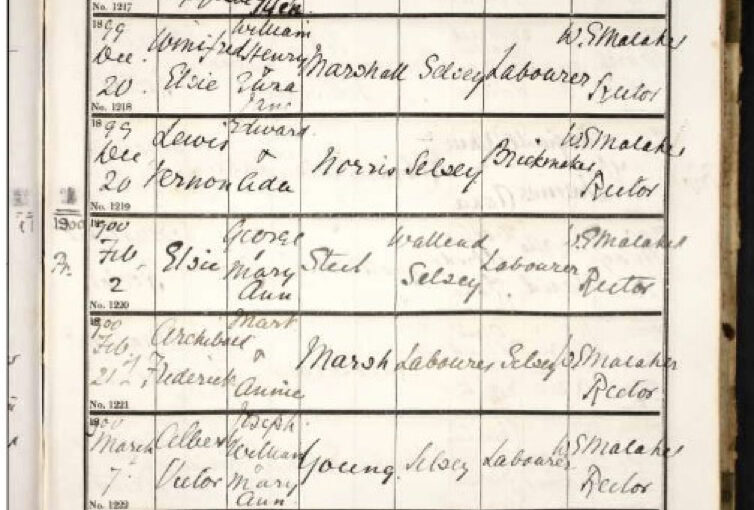 No. 1217
1899
Dec.
20.
Winifred
Elsie
William
Henry
&
Jane
Marshall
Selsey
Labourer
W. E. Malaher
Rector
No. 1218
1899
Dec
20
Lewis
Vernon
Edward
&
Ada
Norris
Selsey
Brickmaker
W. E. Malaher
Rector
No. 1219
1900
1900
Feb.
2
Elsie
George
&
Mary
Ann
Steel
Selsey
Labourer
W. E. Malaher
Rector
No. 1220
1900
Feb.
21
Archibald
Frederick
Mark
&
Annie
Marsh
Labourer
Selsey
W. E. Malaher
Rector
No. 1221
1900
March
7
Albert
Victor
Joseph
William
Mary
Ann
Young
Selsey
Labourer
W. E. Malaher
Rector
No. 1222